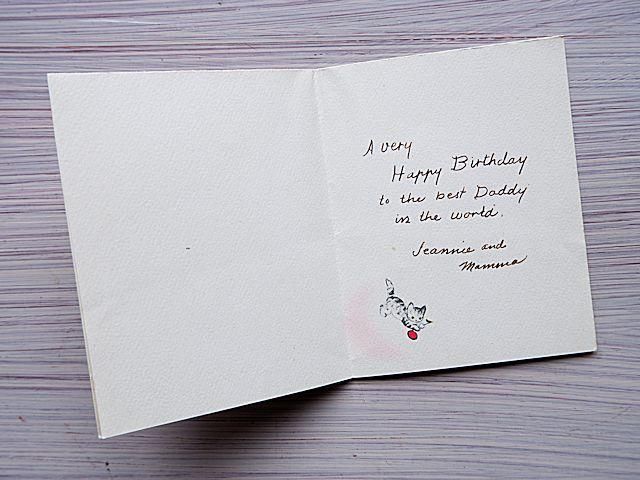 A very
Happy Birthday
to the best Daddy
in the world.
Jeannie and
Mamma